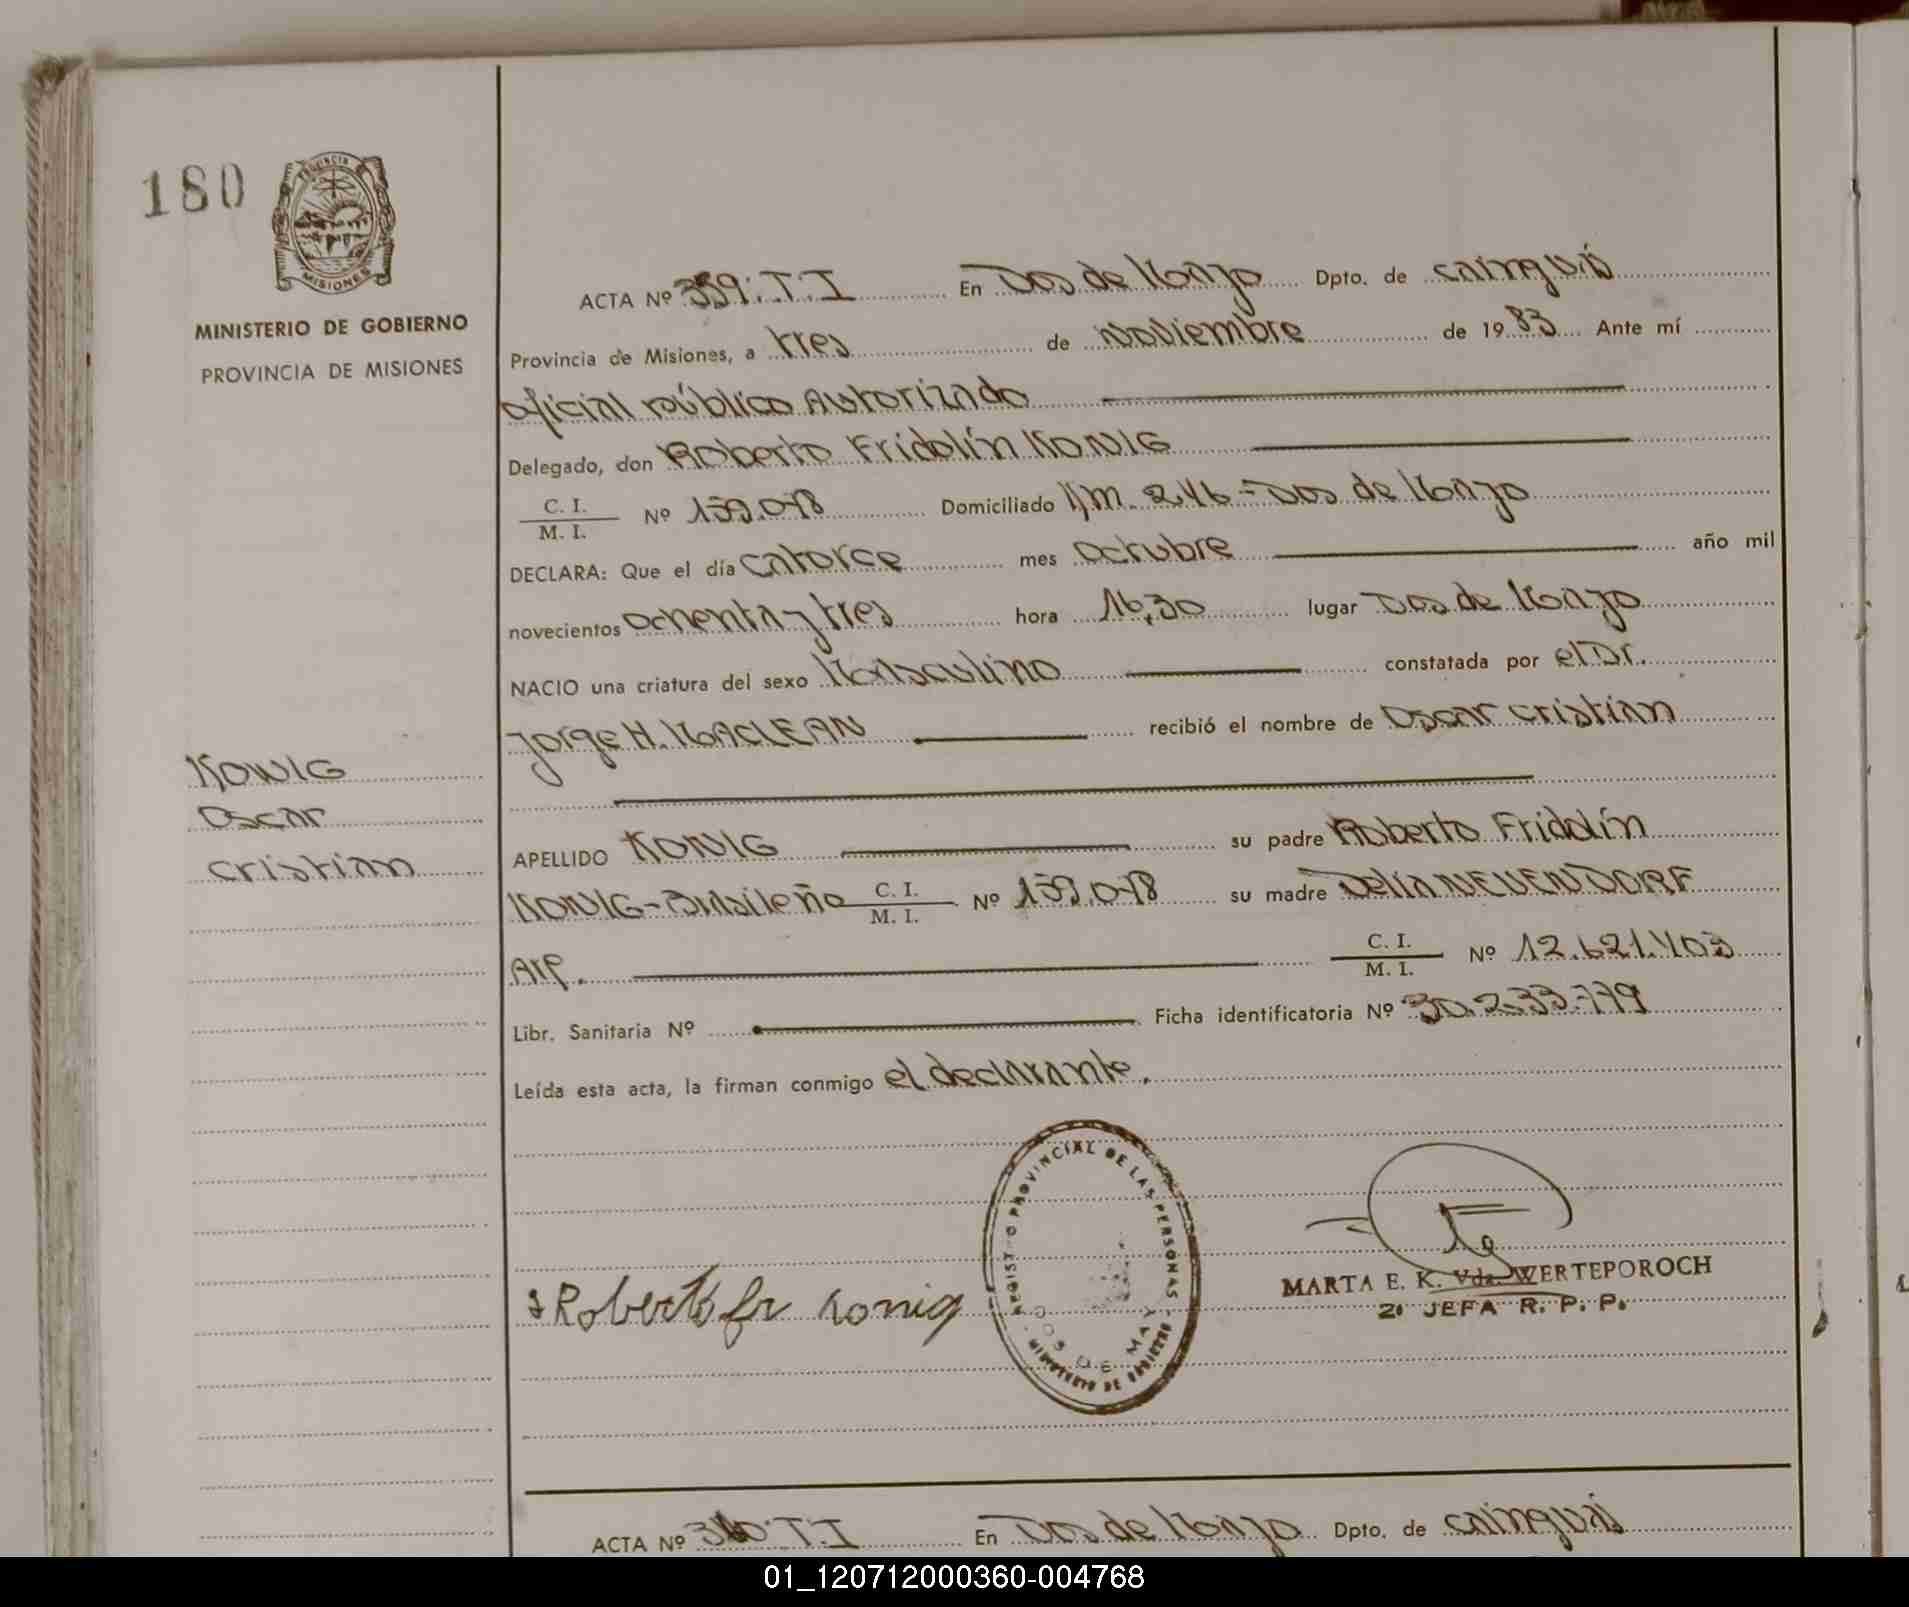 180
PROVINCIA
MISIONES
MINISTERIO DE GOBIERNO
PROVINCIA DE MISIONES
ACTA Nº 359. T. I En Dos de Mayo Dpto. de Cainguás
Provincia de Misiones, a tres de Noviembre de 1983 Ante mí
oficial público Autorizado
Delegado, don Roberto Fridolín KONIG
C. I.
M. I. Nº 159.078 Domiciliado Km. 246 - Dos de Mayo
DECLARA: Que el día catorce mes octubre año mil
novecientos ochenta y tres hora 16,30 lugar Dos de Mayo
NACIO una criatura del sexo Masculino constatada por el Dr.
Jorge H. MACLEAN recibió el nombre de Oscar Cristian
KONIG
Oscar
Cristian
APELLIDO KONIG su padre Roberto Fridolín
KONIG - Brasileño C. I.
M. I. Nº 159.078 su madre Delia NEUENDORF
Arg. C. I.
M. I. Nº 12.621.403
Libr. Sanitaria Nº Ficha identificatoria Nº 30.233.779
Leída esta acta, la firman conmigo el declarante.
REGISTRO PROVINCIAL DE LAS PERSONAS
DOS DE MAYO
MINISTERIO DE GOBIERNO
Roberto fr Konig
MARTA E. K. Vda. WERTEPOROCH
2º JEFA R. P. P.
ACTA Nº 360 T. I En Dos de Mayo Dpto. de Cainguás
01_120712000360-004768